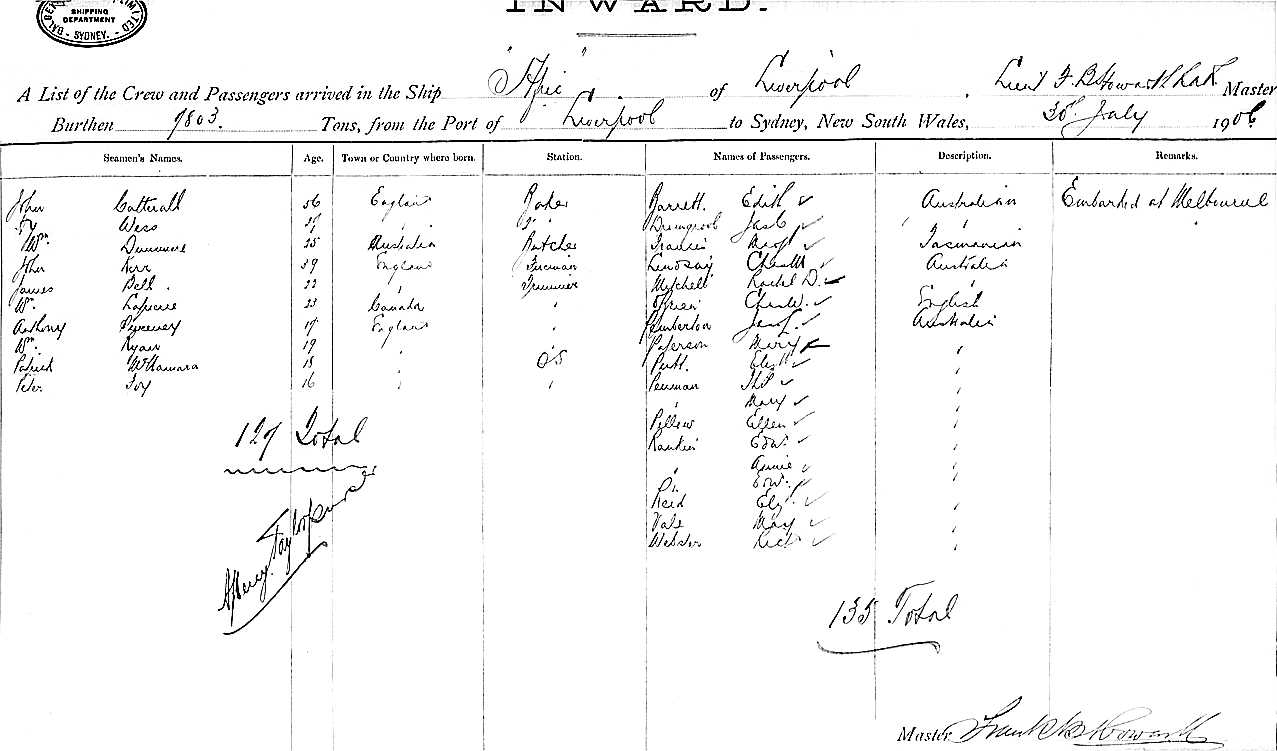 LIMITED
SHIPPING
DEPARTMENT
SYDNEY.
INWARD.
A List of the Crew and Passengers arrived in the Ship "Afric" of Liverpool, Lieut F. B. Howarth Master
Burthen 9803. Tons, from the Port of Liverpool to Sydney, New South Wales, 30th July 1906
Seamen's Names. Age. Town or Country where born. Station. Names of Passengers. Description. Remarks.
John Catterall 56 England Baker Barrett. Edith Australian Embarked at Melbourne
Wess 27 " " Jas " "
Wm. Dunmore 25 Australia Butcher Francis Tasmanian
John Kerr 39 England Fireman Lindsay Chas Australia
James Bell. 22 " Trimmer Mitchell Rachel D. "
W. 23 Canada " O'Brien Chas W. English
Anthony 17 England " Pemberton Australian
Wm. Ryan 19 " " Paterson Mary "
Patrick McNamara 18 " OS "
Peter Foy 16 " " Penman "
" Mary "
Pellew Ellen "
Rankin Edw. "
" Annie "
Edw. "
Reid Eliz. "
Vale May "
Webster "
127 Total
135 Total
Master Frank B Howarth